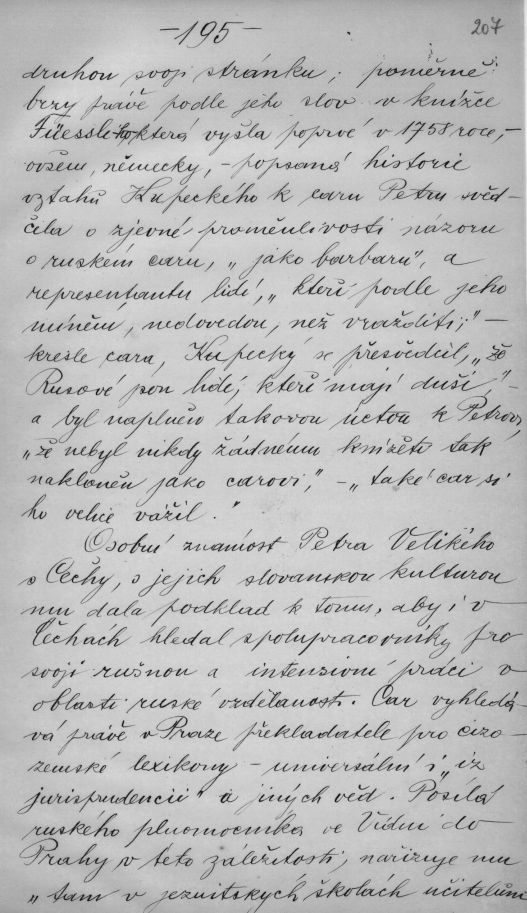 -195-
207
druhou svoji stránku; poměrně
brzy právě podle jeho slov v knížce
Füessliho, která vyšla poprvé v 1758 roce,-
ovšem, německy, - popsaná historie
vztahů Kupeckého k caru Petru svěd-
čila o zjevné proměnlivosti názoru
o ruském caru, „jako barbaru", a
representantu lidí, „kteří podle jeho
mínění, nedovedou, než vražditi;" -
kresle cara, Kupecký se přesvědčil, „že
Rusové jsou lidé, kteří mají duši," -
a byl naplněn takovou úctou k Petrovi,
„že nebyl nikdy žádnému knížeti tak
nakloněn jako carovi," - „také car si
ho velice vážil."
Osobní známost Petra Velikého
s Čechy, s jejich slovanskou kulturou
mu dala podklad k tomu, aby i v
Čechách hledal spolupracovníky pro
svoji rušnou a intensivní práci v
oblasti ruské vzdělanosti. Car vyhledá-
vá právě v Praze překladatele pro cizo-
zemské lexikony - universální i „iz
jurisprudencii" a jiných věd. Posílá
ruského plnomocníka ve Vídni do
Prahy v této záležitosti, nařizuje mu
„tam v jezuitských školách učitelům